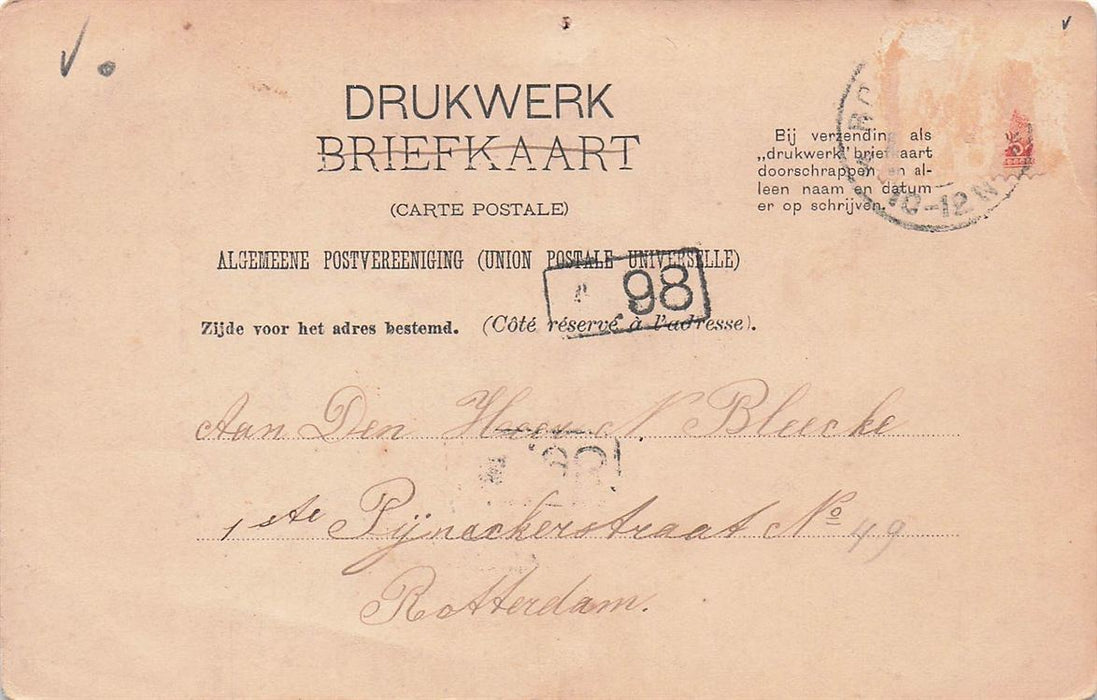 DRUKWERK
BRIEFKAART
(CARTE POSTALE)
ALGEMEENE POSTVEREENIGING (UNION POSTALE UNIVERSELLE)
Zijde voor het adres bestemd. (Côté réservé à l'adresse).
Bij verzending als
„drukwerk" briefkaart
doorschrappen en al-
leen naam en datum
er op schrijven.
10-12 V
5
98
Aan Den Heer N Bleecke
98
1ste Pijnackerstraat No 49
Rotterdam.